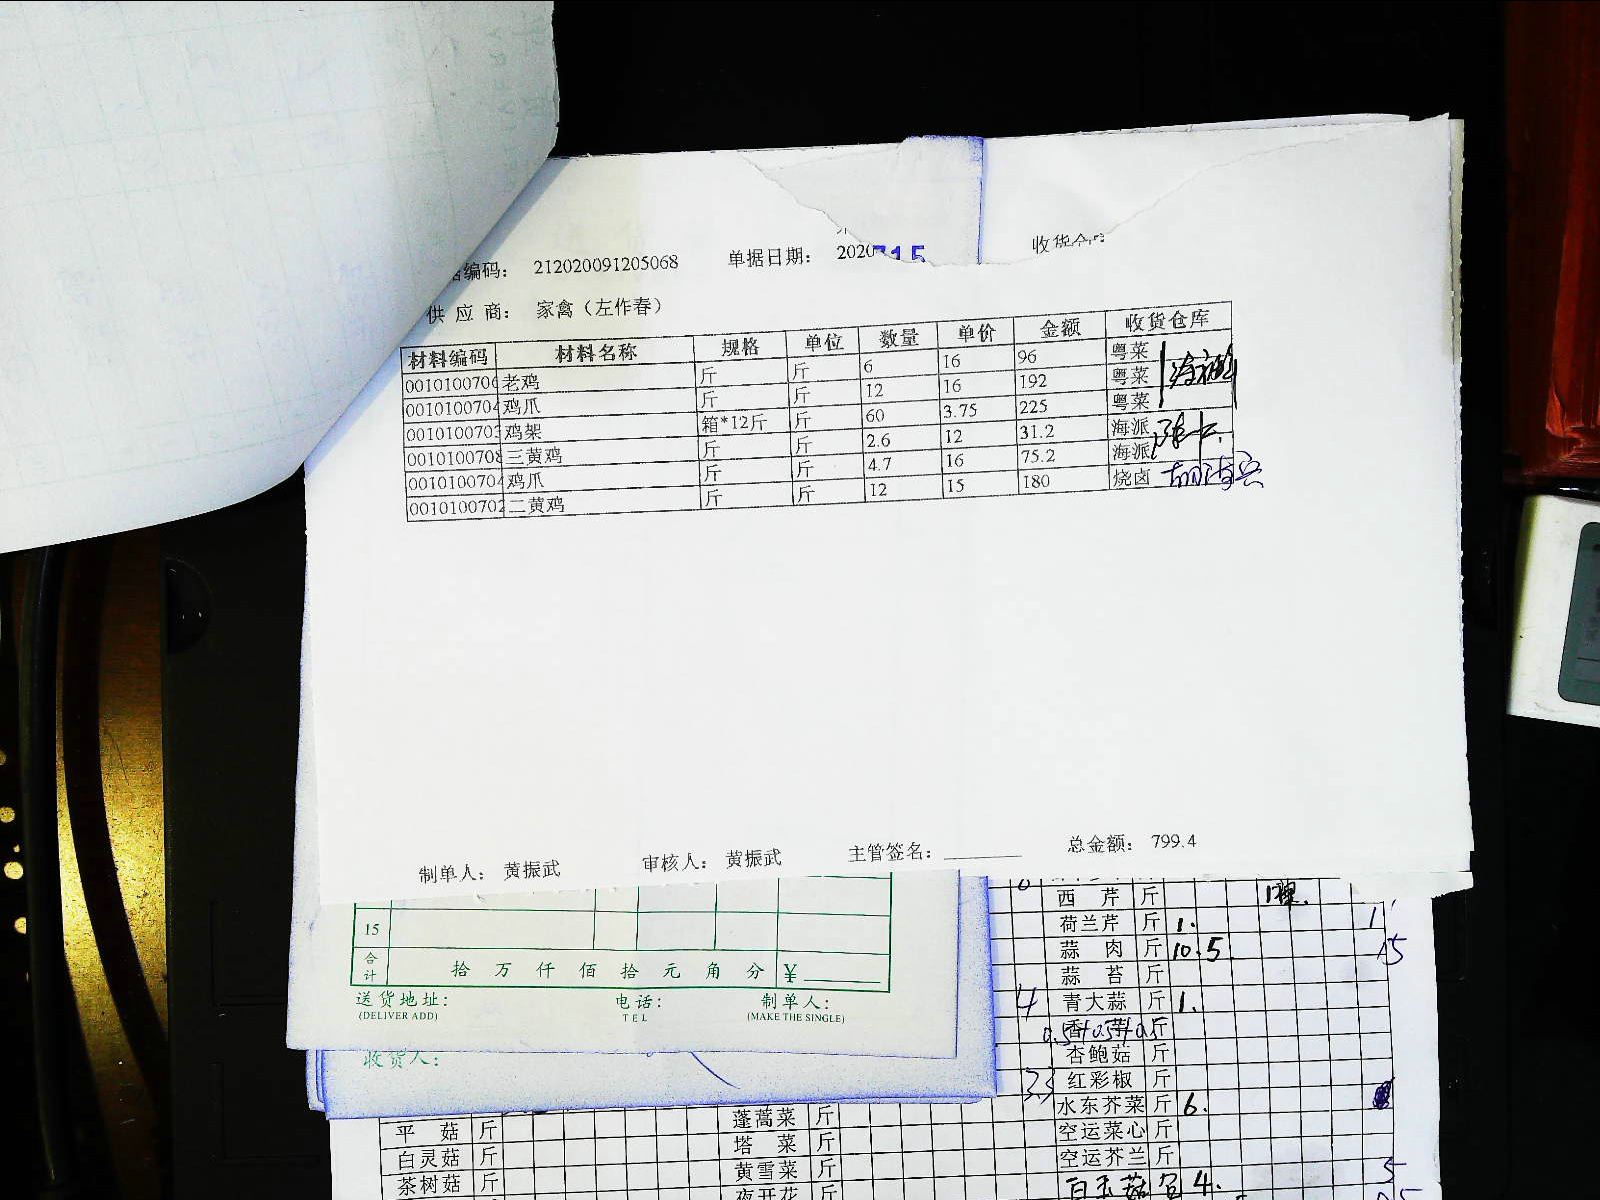 编码： 212020091205068 单据日期： 2020 315 收货仓
供 应 商： 家禽（左作春）
材料编码 材料名称 规格 单位 数量 单价 金额 收货仓库
001010070 老鸡 斤 斤 6 16 96 粤菜
001010070 鸡爪 斤 斤 12 16 192 粤菜
001010070 鸡架 箱*12斤 斤 60 3.75 225 粤菜
001010070 三黄鸡 斤 斤 2.6 12 31.2 海派
001010070 鸡爪 斤 斤 4.7 16 75.2 海派
001010070 二黄鸡 斤 斤 12 15 180 烧卤
制单人： 黄振武 审核人： 黄振武 主管签名： 总金额： 799.4
15
合计 拾 万 仟 佰 拾 元 角 分 ¥
送货地址： 电话： 制单人：
(DELIVER ADD) TEL (MAKE THE SINGLE)
收货人：
西 芹 斤
荷兰芹 斤 1. 1
蒜 肉 斤 10.5 15
蒜 苔 斤
4 青大蒜 斤 1.
斤
杏鲍菇 斤
33 红彩椒 斤
水东芥菜 斤 6.
空运菜心 斤
空运芥兰 斤 5
4.
蓬蒿菜 斤
塔 菜 斤
黄雪菜 斤
夜开花 斤
平 菇 斤
白灵菇 斤
茶树菇 斤